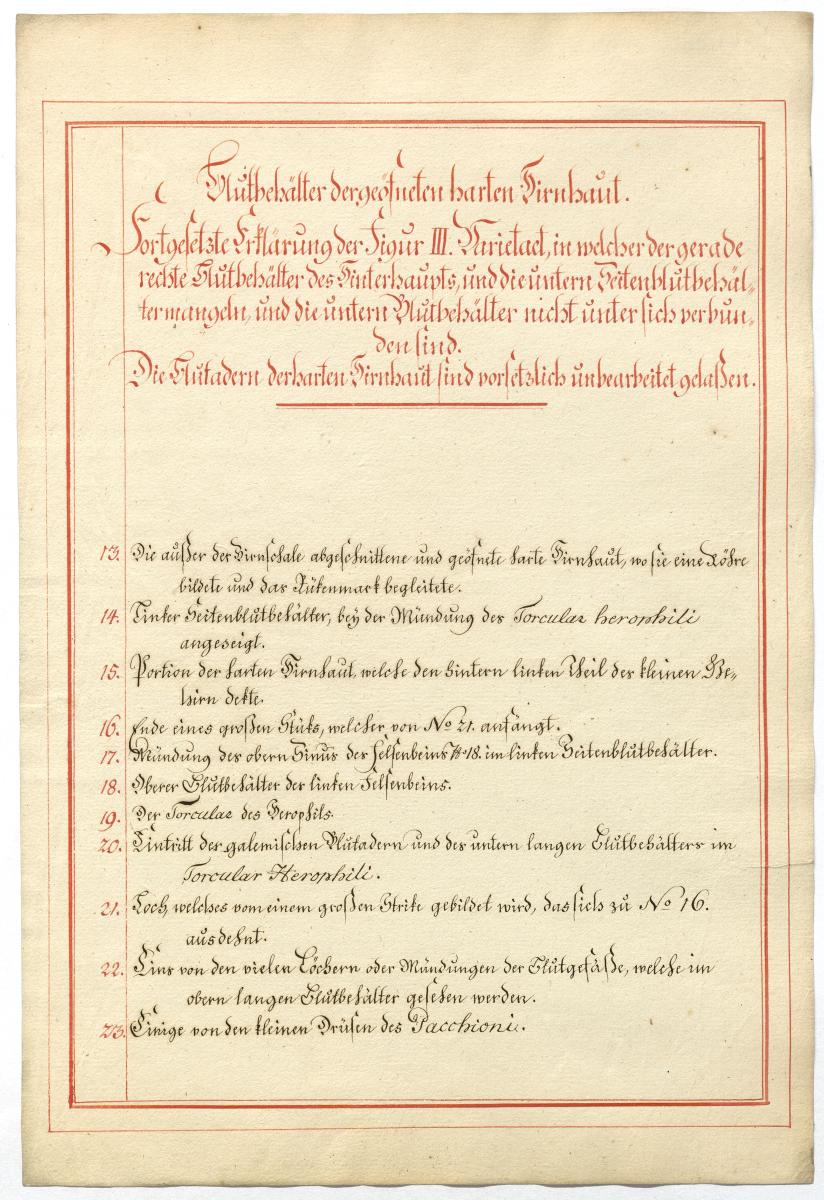 Blutbehälter der geöfneten harten Hirnhaut.
Fortgesetzte Erklärung der Figur III. Varietaet, in welcher der gerade
rechte Blutbehälter des Hinterhaupts, und die untern Seitenblutbehäl-
ter mangeln, und die untern Blutbehälter nicht unter sich verbun-
den sind.
Die Blutadern der harten Hirnhaut sind vorsetzlich unbearbeitet gelaßen.
13. Die außer der Hirnschale abgeschnittene und geöfnete harte Hirnhaut, wo sie eine Röhre
bildete und das Rükenmark begleitete.
14. Linker Seitenblutbehälter, bey der Mündung des Torcular herophili
angezeigt.
15. Portion der harten Hirnhaut, welche den hintern linken Theil des kleinen Ge-
hirn dekte.
16. Ende eines großen Stüks, welcher von No 21. anfängt.
17. Mündung des obern Sinus des Felsenbeins No 18. im linken Seitenblutbehälter.
18. Oberer Blutbehälter des linken Felsenbeins.
19. Der Torcular des Herophils.
20. Eintritt der galenischen Blutadern und des untern langen Blutbehälters im
Torcular Herophili.
21. Loch, welches vom einem großen Strike gebildet wird, das sich zu No 16.
ausdehnt.
22. Eins von den vielen Löchern oder Mündungen der Blutgefäße, welche im
obern langen Blutbehälter gesehen werden.
23. Einige von den kleinen Drüsen des Pacchioni.